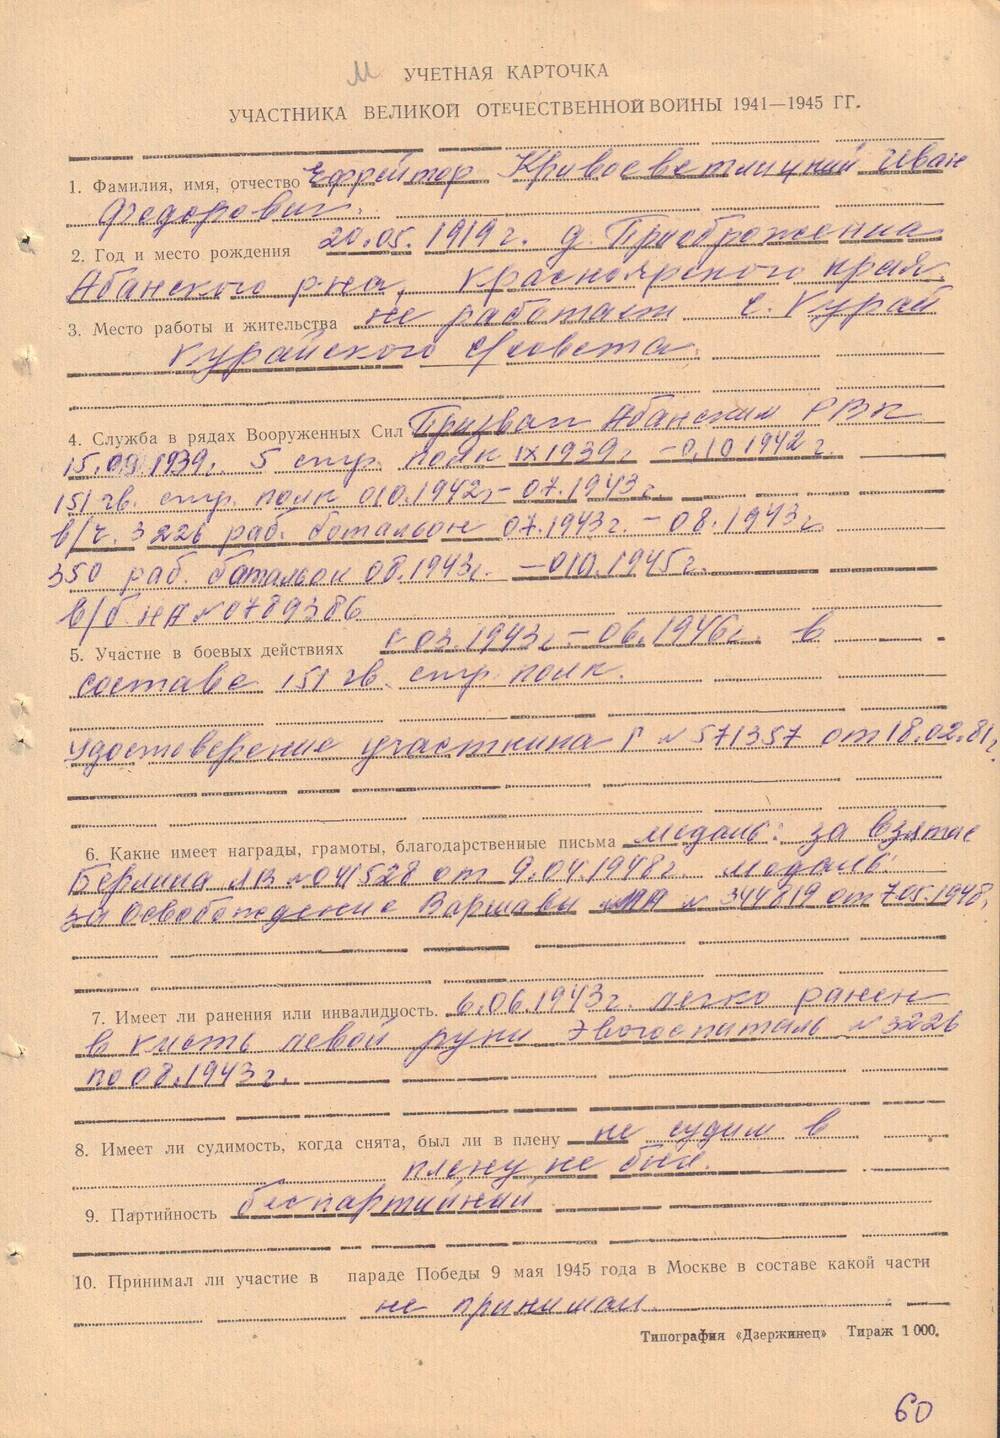 М УЧЕТНАЯ КАРТОЧКА
УЧАСТНИКА ВЕЛИКОЙ ОТЕЧЕСТВЕННОЙ ВОЙНЫ 1941—1945 ГГ.
1. Фамилия, имя, отчество Ефрейтор Кривосветлицкий Иван
Федорович.
2. Год и место рождения 20.05.1919 г. д. Приображенка
Абанского р-на, Красноярского края.
3. Место работы и жительства не работает с. Курай
Курайского с/совета.
4. Служба в рядах Вооруженных Сил Призван Абанским РВК
15.09.1939г. 5 стр. полк IX 1939 г. - 0.10 1942 г.
151 гв. стр. полк 010.1942г - 07.1943г.
в/ч. 3226 раб. батальон 07.1943г. - 08.1943г.
350 раб. батальон 08.1943г. - 010.1945г.
в/б. НА № 0789386
5. Участие в боевых действиях с 03.1943г - 06.1946г. в
составе 151 гв. стр. полк.
Удостоверение участника Г № 571357 от 18.02.81г.
6. Какие имеет награды, грамоты, благодарственные письма медаль: за взятие
Берлина ЛВ № 041528 от 9.04.1948г медаль:
за освобождение Варшавы № 344819 от 7.05.1948.
7. Имеет ли ранения или инвалидность. 6.06.1943г. легко ранен
в кисть левой руки Эвогоспиталь № 3226
по 08.1943г.
8. Имеет ли судимость, когда снята, был ли в плену не судим в
плену не был.
9. Партийность беспартийный
10. Принимал ли участие в параде Победы 9 мая 1945 года в Москве в составе какой части
не принимал.
Типография «Дзержинец» Тираж 1 000.
60